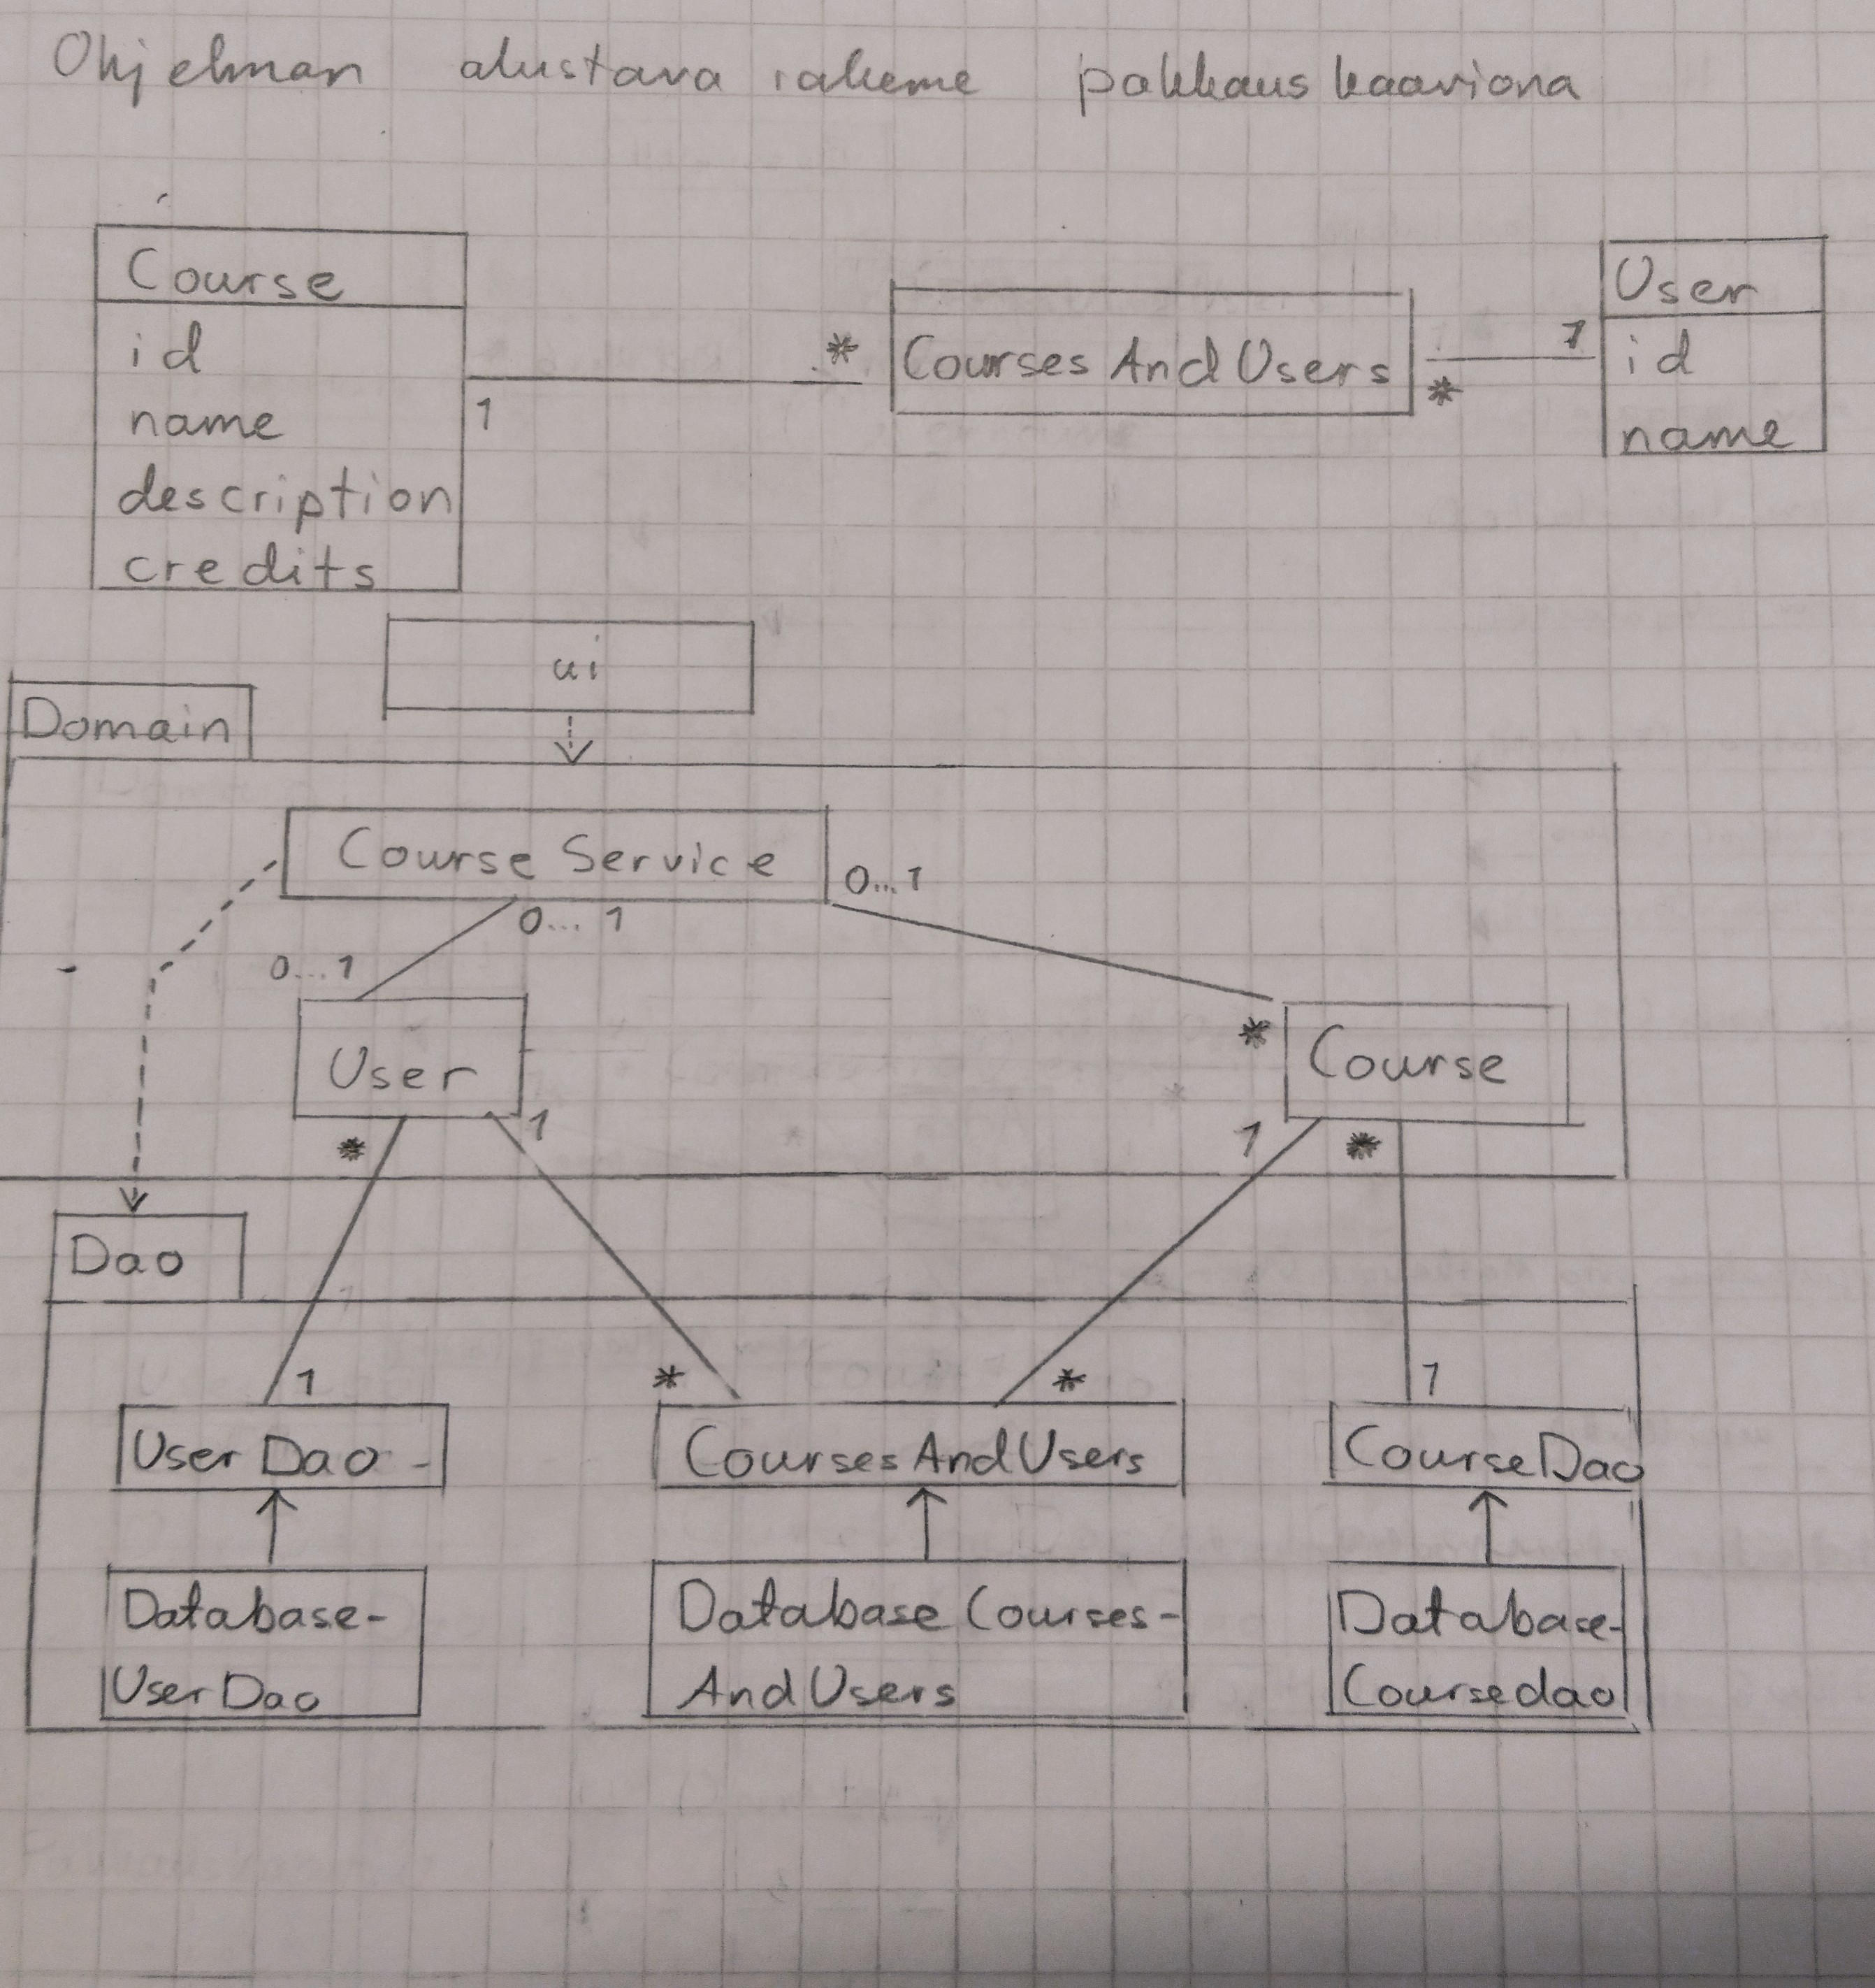 Ohjelman alustava rakenne pakkauskaaviona
Course
id
name
description
credits
1
*
Courses And Users
*
1
User
id
name
ui
Domain
Course Service
0...1
0...1
0...1
User
*
Course
*
1
1
*
Dao
1
*
*
1
User Dao
CoursesAndUsers
CourseDao
Database-
UserDao
Database Courses-
AndUsers
Database-
Coursedao